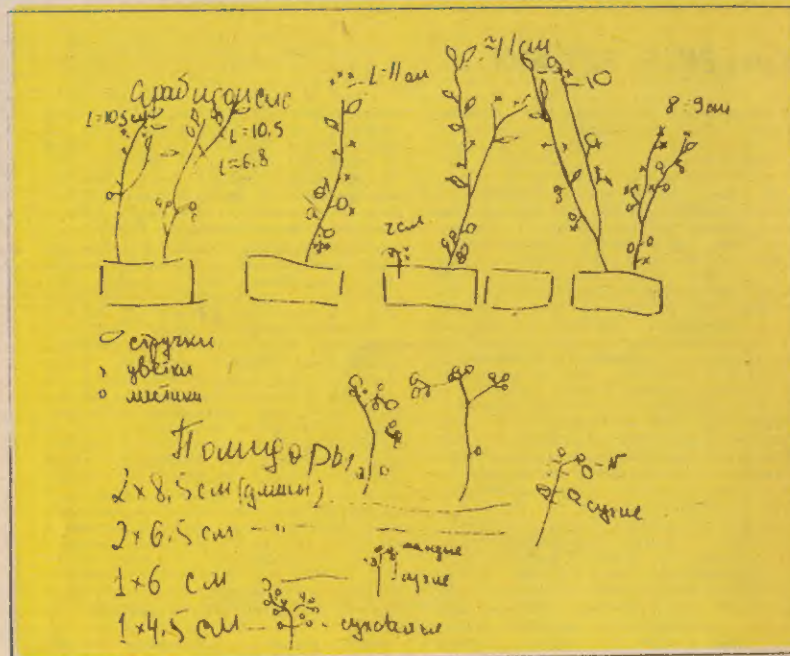 Арабидопсис
L=10,5 см
L=10.5
L=6.8
L-11 см
≈11 см
10
8÷9 см
2 см
стручки
цветки
листики
Помидоры
2×8,5 см (длины)
2×6.5 см — " —
сухие
1×6 см
сухие
1×4.5 см —